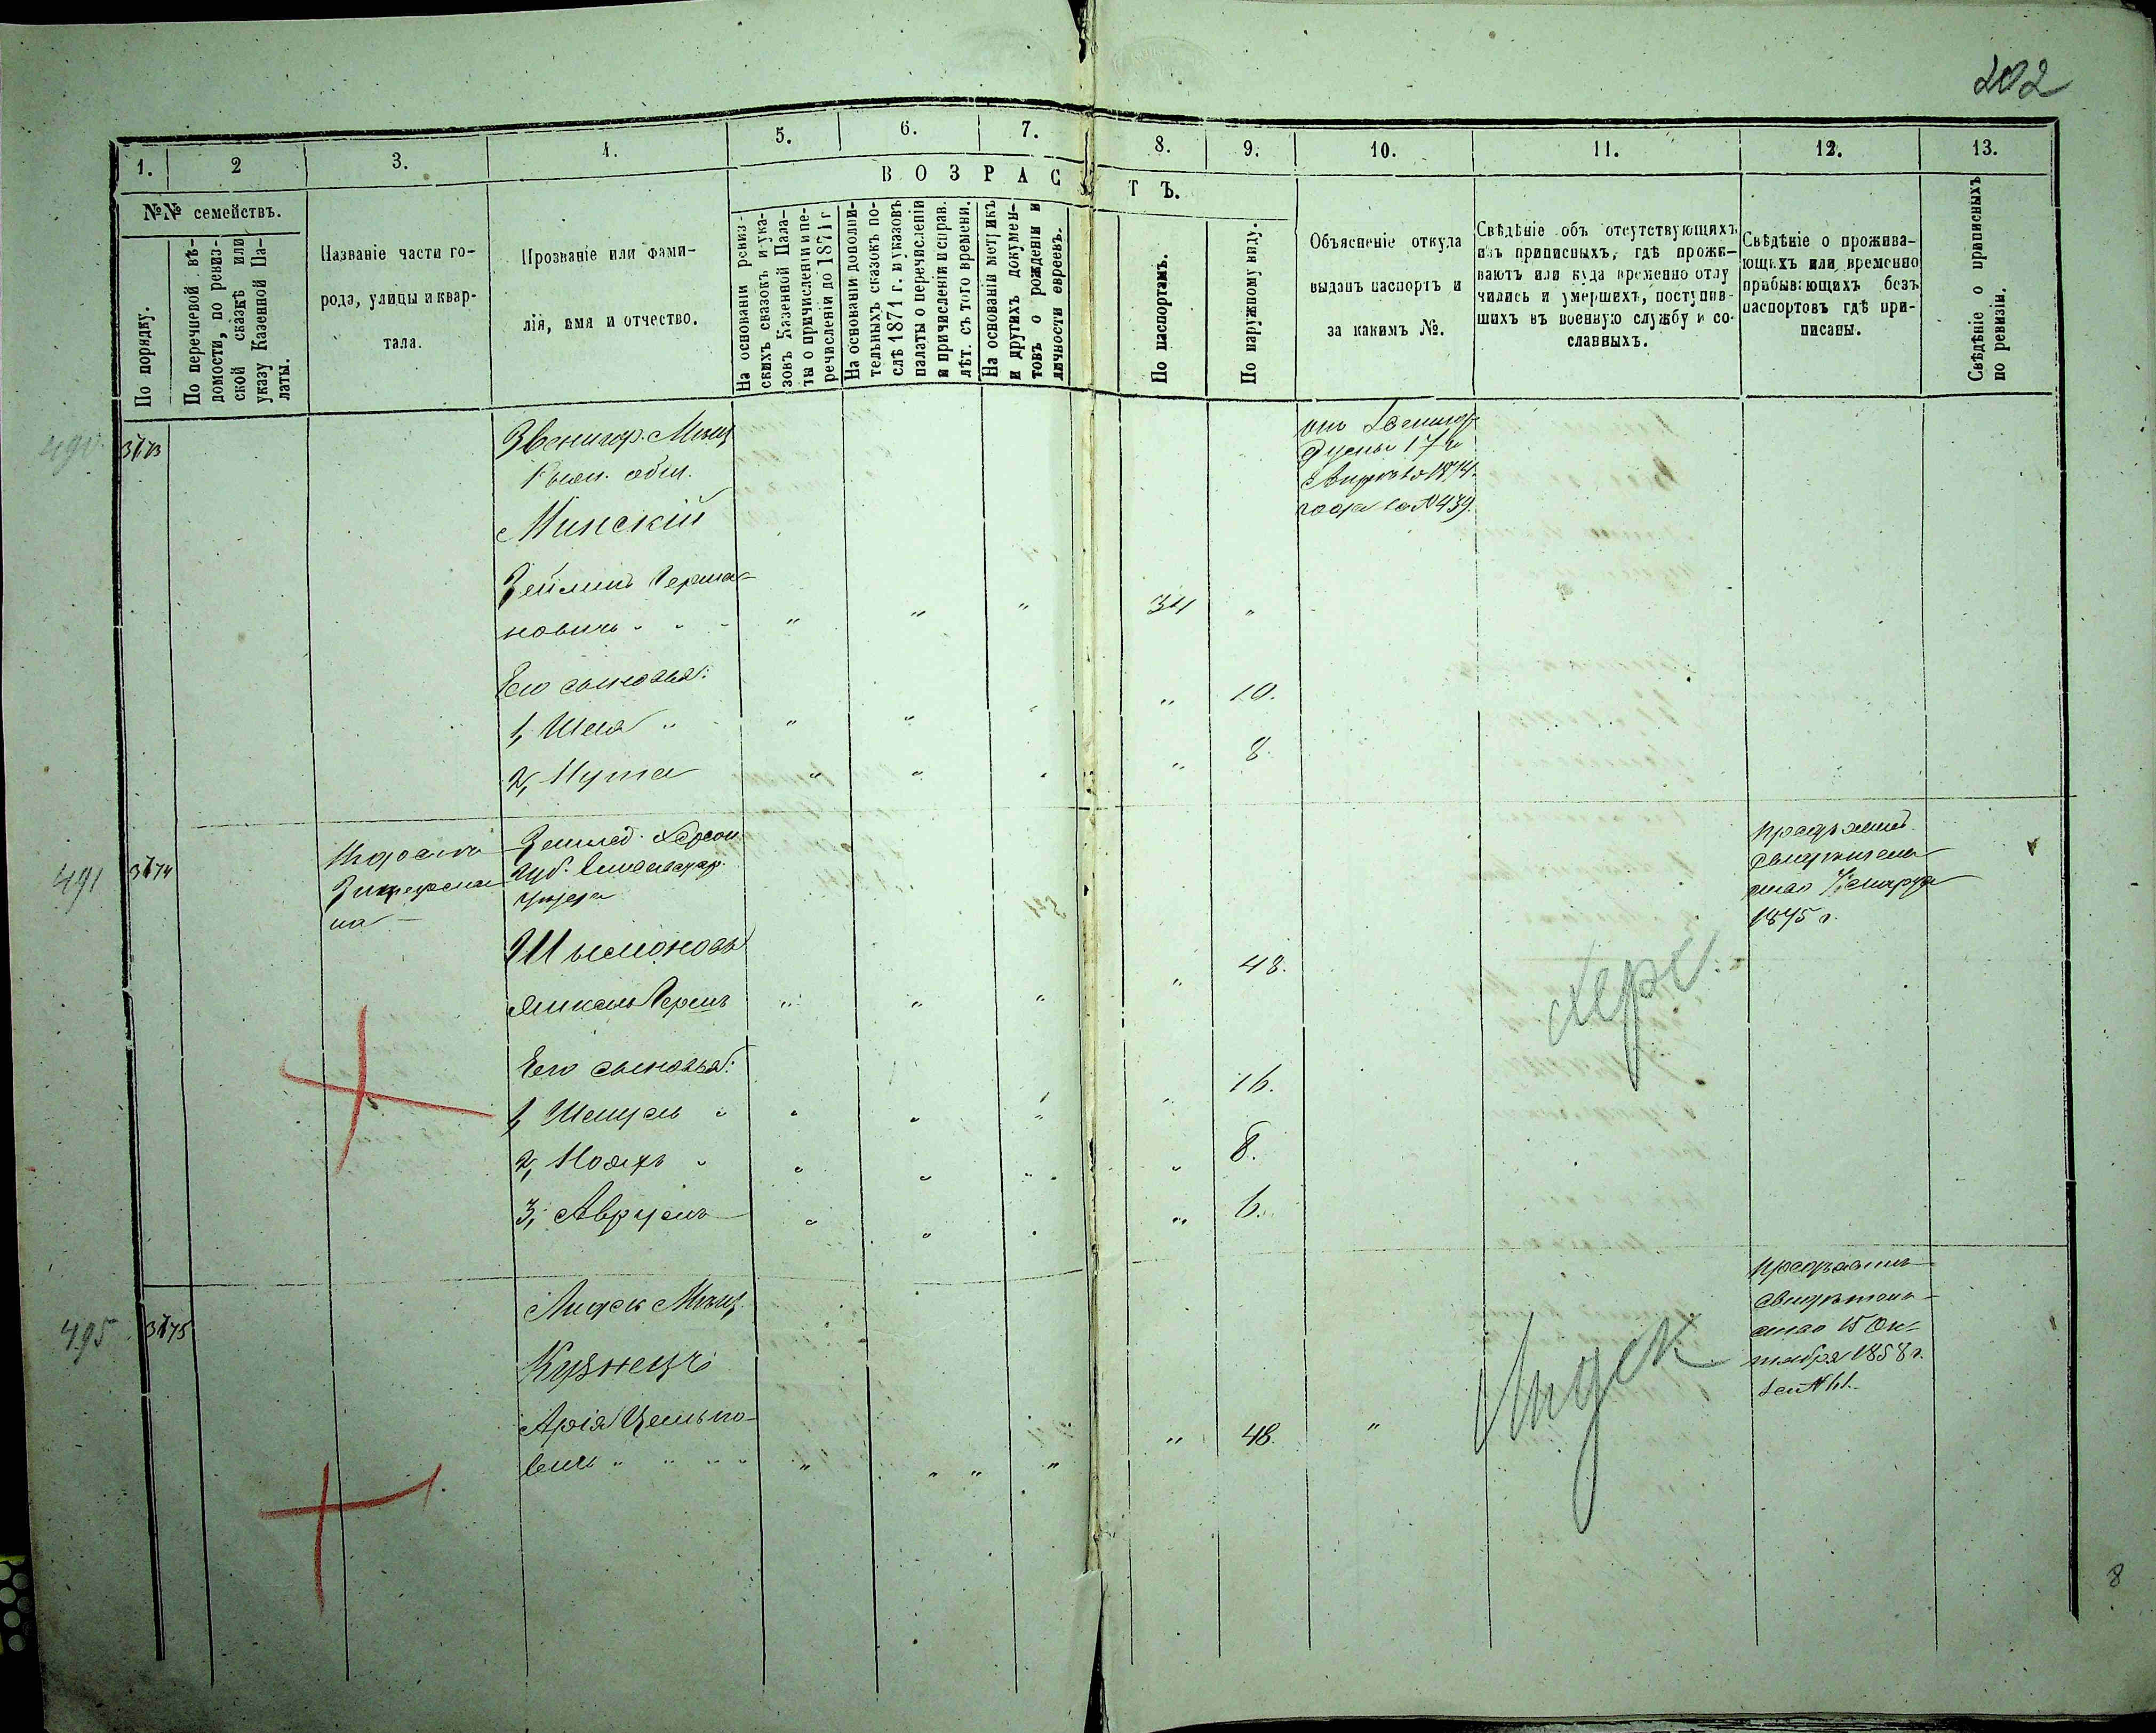 202
1.
2
3.
4.
5.
6.
7.
8.
9.
10.
11.
12.
13.
№№ семействъ.
По порядку.
По перечневой вѣ-
домости, по ревиз-
ской сказкѣ или
указу Казенной Па-
латы.
Названіе части го-
рода, улицы и квар-
тала.
Прозваніе или фами-
лія, имя и отчество.
ВОЗРАСТЪ.
На основаніи ревиз-
скихъ сказокъ и ука-
зовъ Казенной Пала-
ты о причисленіи и пе-
речисленіи до 1871 г
На основаніи дополни-
тельныхъ сказокъ по-
слѣ 1871 г. и указовъ
палаты о перечисленіи
и причисленіи и справ.
лѣт. съ того времени.
На основаніи метрикъ
и другихъ докумен-
товъ о рожденіи и
личности евреевъ.
По паспортамъ.
По наружному виду.
Объясненіе откуда
выданъ паспортъ и
за какимъ №.
Свѣдѣніе объ отсутствующихъ
изъ приписныхъ, гдѣ прожи-
ваютъ или куда временно отлу
чились и умершихъ, поступив-
шихъ въ военную службу и со-
сланныхъ.
Свѣдѣніе о прожива-
ющихъ или временно
прибывающихъ безъ
паспортовъ гдѣ при-
писаны.
Свѣдѣніе о приписныхъ
по ревизіи.
490
3173
Звенигор. Мѣщ
общ.
Минскій
Зейликъ Герша-
новичъ " " " " " 34 "
Его сыновья:
1, Шея " " " " " 10.
2, Нута " " " " 8.
17
1874
года за №439.
491
3174
Землед. Херсон.
губ. Елисаветгр.
уѣзда
Шымоновъ
Янкель Гершъ " " " " 48.
Его сыновья:
1, Шмуель " " " " " 16.
2, Ноахъ " " " " " 8.
3, Аврумъ " " " " 6.
Херс.
Предъявилъ
свидѣтель
ство
1875 г.
495
3175
Лидск Мѣщ.
Кузнецъ
Арія
вичъ " " " " " " " " " 48. "
Лидск
Предъявилъ
свидѣтель-
ство 15 Ок-
тября 1858 г.
за №61.
8